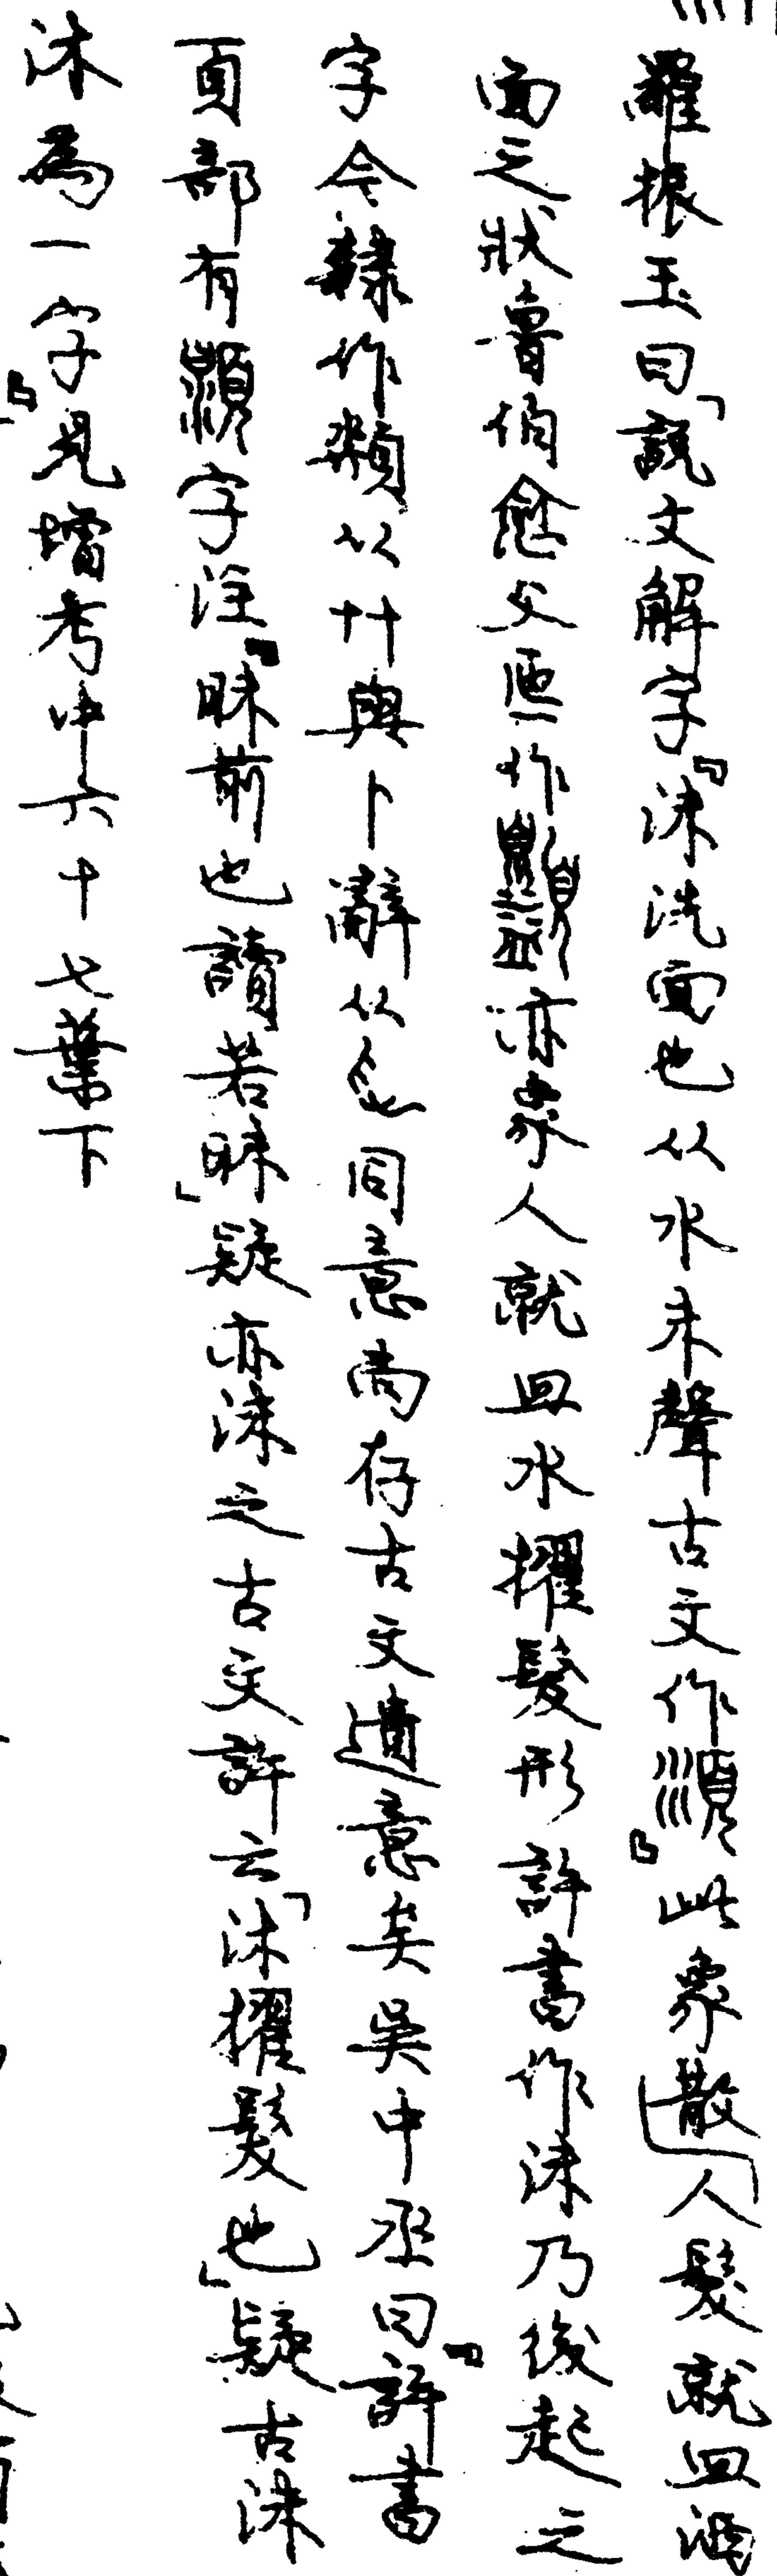 羅振玉曰「說文解字『沬洗面也从水未聲古文作湏』此象散人髮就皿洒
面之狀魯伯愈父匜作䫁亦象人就皿水擢髮形許書作沬乃後起之
字今隸作頮从廾與卜辭从同意尚存古文遺意矣吳中丞曰『許書
頁部有顮字注『昧前也讀若昧』疑亦沬之古文許云「沐擢髮也」疑古沬
沐為一字』見增考中六十七葉下